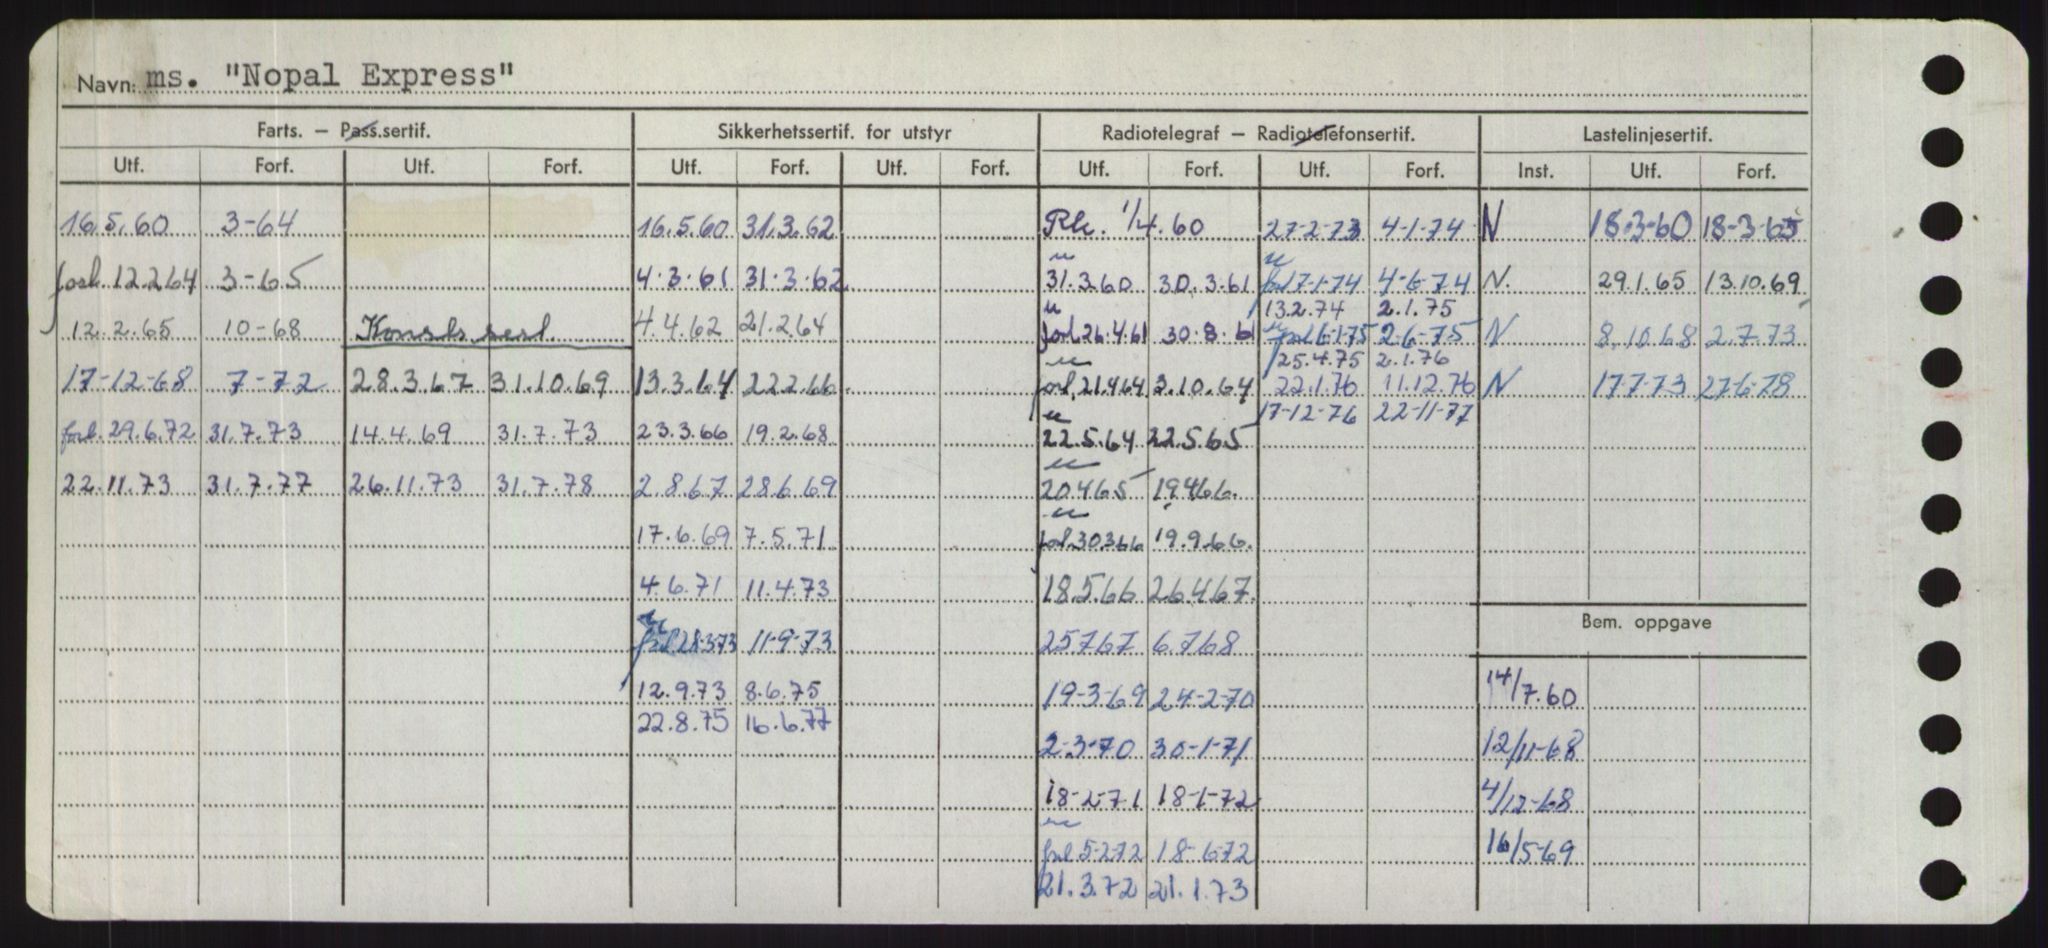 Navn: ms. "Nopal Express"
Farts. – Pass.sertif. Sikkerhetssertif. for utstyr Radiotelegraf – Radiotelefonsertif. Lastelinjesertif.
Utf. Forf. Utf. Forf. Utf. Forf. Utf. Forf. Utf. Forf. Utf. Forf. Inst. Utf. Forf.
16.5.60 3-64 16.5.60 31.3.62 1/4.60 27-2-73 4-1-74 N 18-3-60 18-3-65
forl. 12.2.64 3-65 4.3.61 31.3.62 31.3.60 30.3.61 forl 17-1-74 4-6-74 N. 29.1.65 13.10.69
13.2.74 2.1.75
12.2.65 10-68 4.4.62 21.2.64 forl 26.4.61 30.8.61 forl 6-1-75 2-6-75 N 8.10.68 2.7.73
25.4.75 2.1.76
17-12-68 7-72 28.3.67 31.10.69 13.3.64 22.2.66 forl. 21.4.64 3.10.64 22.1.76 11.12.76 N 17-7-73 27-6-78
17-12-76 22-11-77
forl. 29.6.72 31.7.73 14.4.69 31.7.73 23.3.66 19.2.68 22.5.64 22.5.65
22.11.73 31.7.77 26.11.73 31.7.78 2.8.67 28.6.69 20.4.65 19.4.66.
17.6.69 7.5.71 forl. 30.3.66 19.9.66.
4.6.71 11.4.73 18.5.66 26.4.67.
Bem. oppgave
forl. 28-3-73 11-9-73 25.7.67 6.7.68
12.9.73 8.6.75 19-3-69 24-2-70 14/7.60
22.8.75 16.6.77
2-3-70 30-1-71 12/11-68
18-2-71 18-1-72 4/12-68
forl 5-2-72 18-6-72 16/5-69
21.3.72 21.1.73